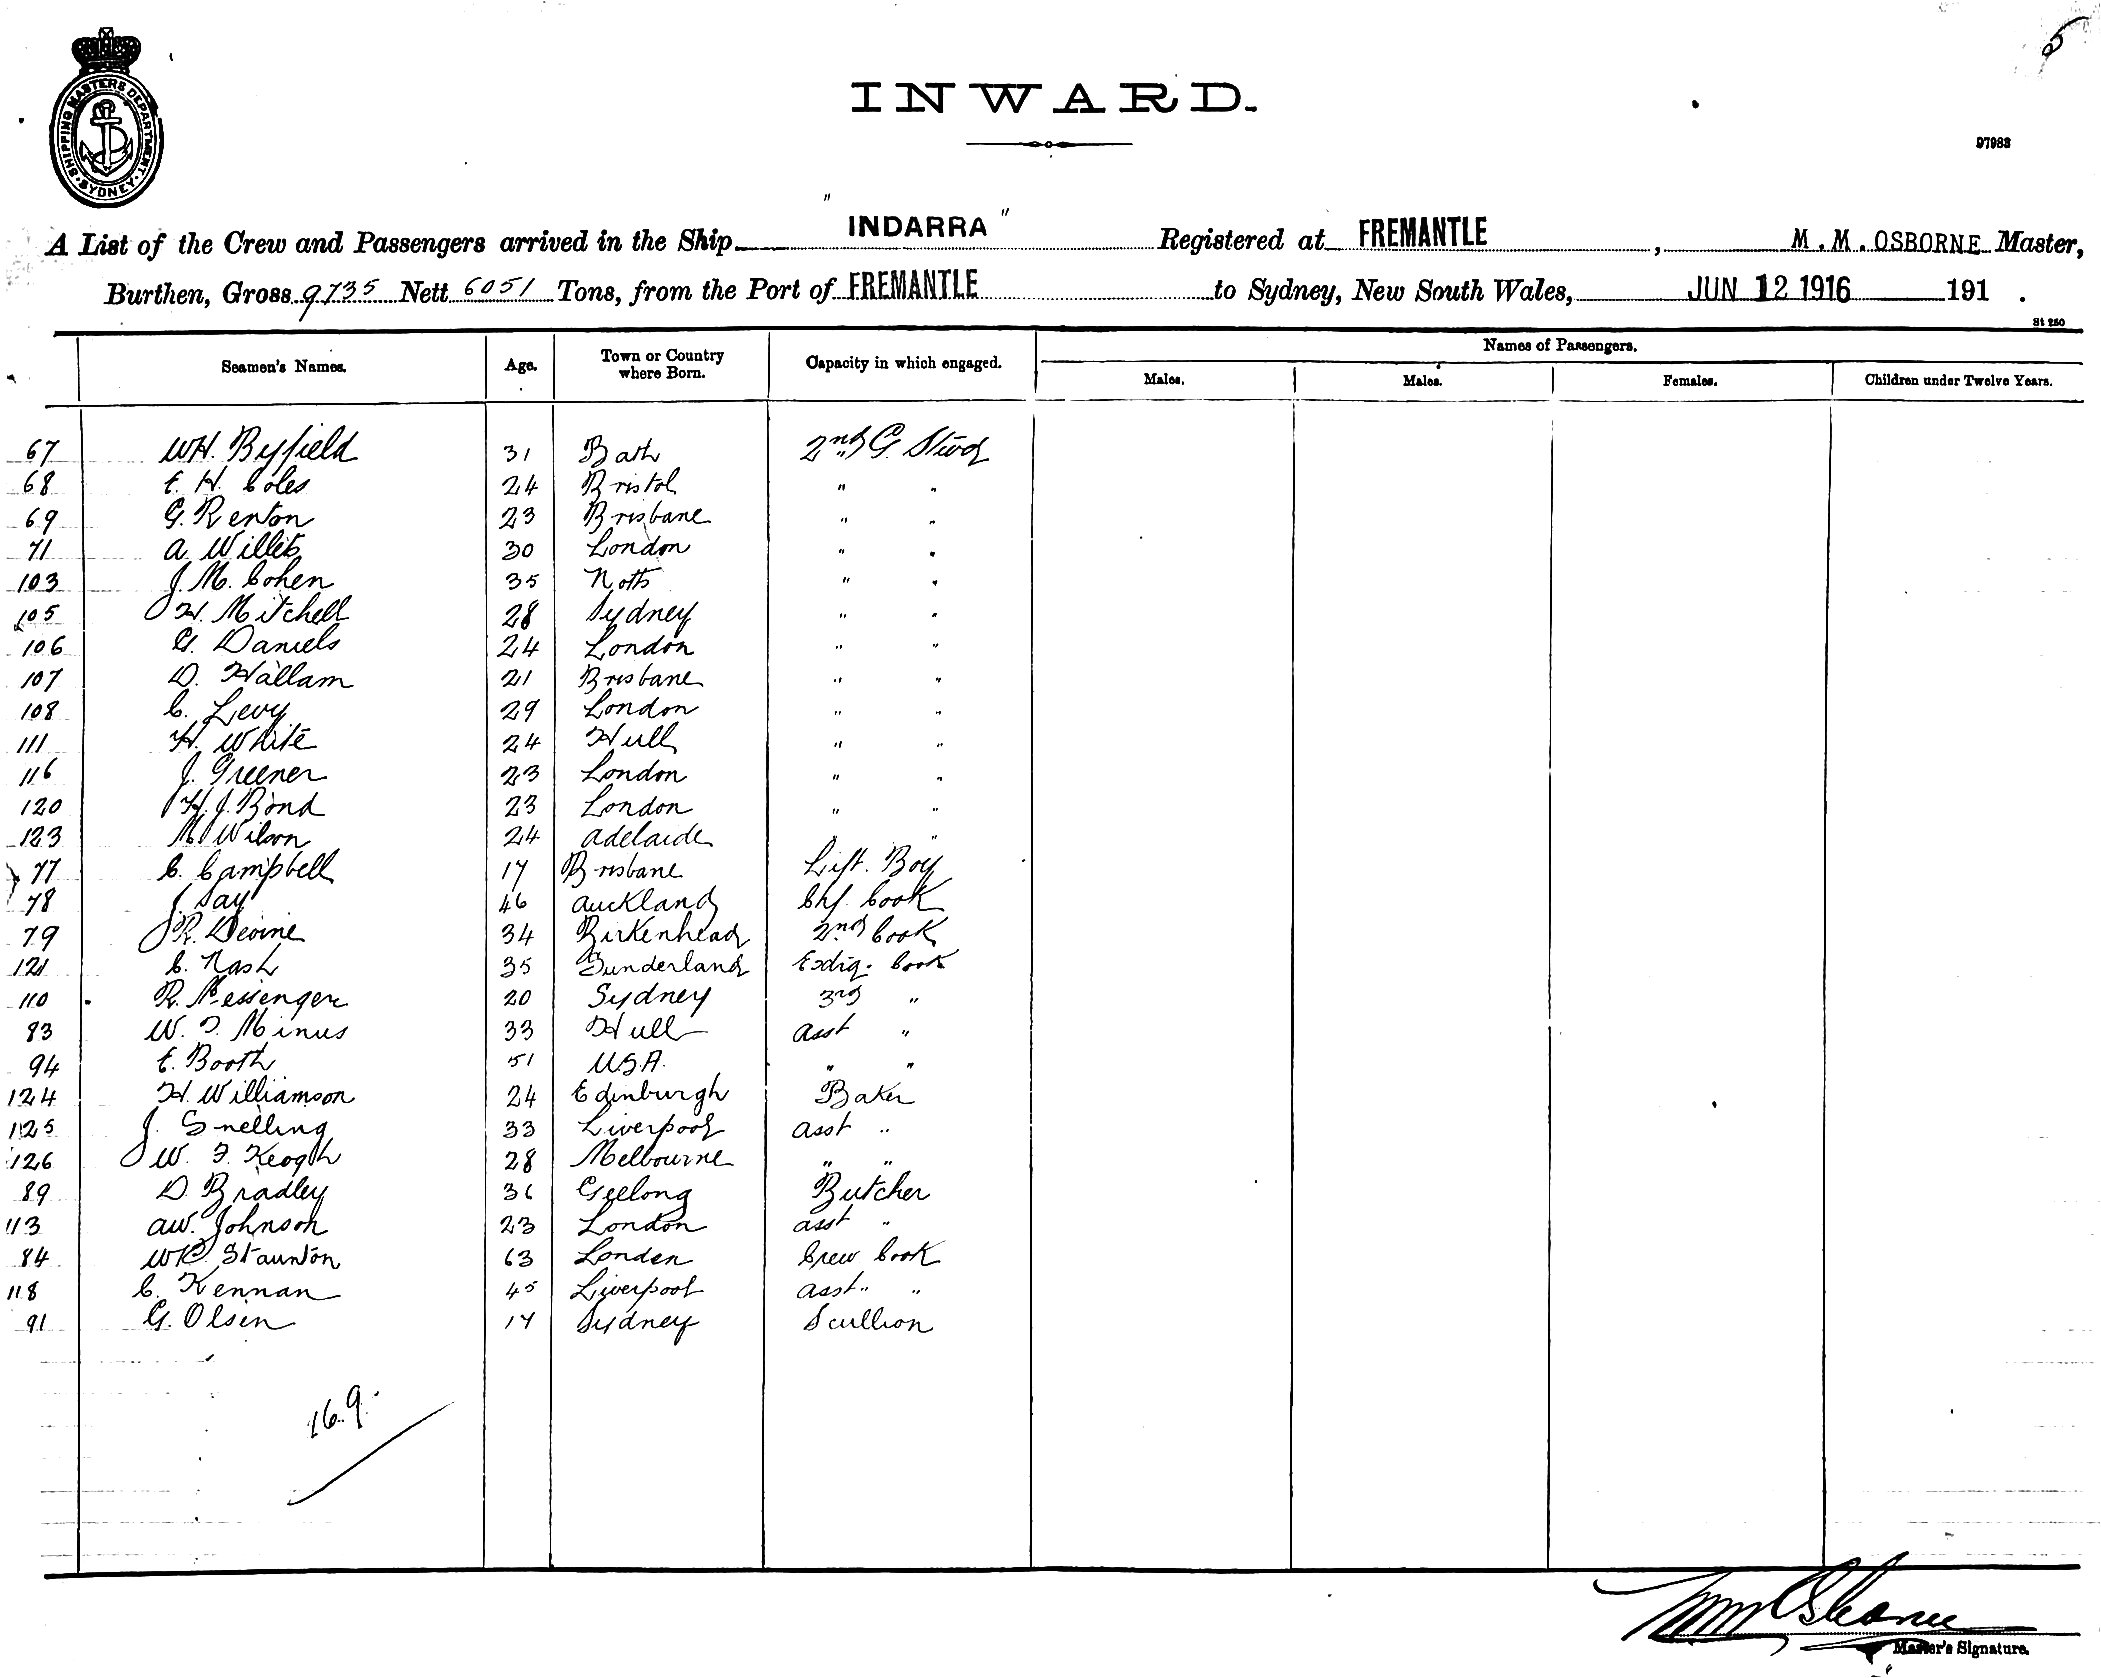 5
SHIPPING MASTERS DEPARTMENT. SYDNEY.
INWARD.
97983
A List of the Crew and Passengers arrived in the Ship "INDARRA" Registered at FREMANTLE, M. M. OSBORNE Master,
Burthen, Gross 9735 Nett 6051 Tons, from the Port of FREMANTLE to Sydney, New South Wales, JUN 12 1916 191 .
St 250
Seamen's Names. Age. Town or Country where Born. Capacity in which engaged. Names of Passengers.
Males. Males. Females. Children under Twelve Years.
67 WH. Byfield 31 Bath 2nd G. Stwd
68 E. H. Coles 24 Bristol " "
69 G. Renton 23 Brisbane " "
71 A Willits 30 London " "
103 J. M. Cohen 35 Notts " "
105 H. Mitchell 28 Sydney " "
106 G. Daniels 24 London " "
107 D. Hallam 21 Brisbane " "
108 C. Levy 29 London " "
111 H. White 24 Hull " "
116 J. Greener 23 London " "
120 H. J. Bond 23 London " "
123 M Wilson 24 Adelaide " "
77 C. Campbell 17 Brisbane Lift. Boy
78 J. Say 46 Auckland Chf. Cook
79 R. Devine 34 Birkenhead 2nd Cook
121 C. Nash 35 Sunderland Cook
110 R. Messenger 20 Sydney 3rd "
83 W. T. Minus 33 Hull Asst "
94 E. Booth 51 USA. " "
124 H. Williamson 24 Edinburgh Baker
125 J. Snelling 33 Liverpool Asst "
126 W. F. Keogh 28 Melbourne " "
89 D. Bradley 36 Geelong Butcher
113 AW. Johnson 23 London Asst "
84 WC. Staunton 63 London Crew Cook
118 C. Kennan 45 Liverpool Asst " "
91 G. Olsen 17 Sydney Scullion
169.
MM Osborne
Master's Signature.